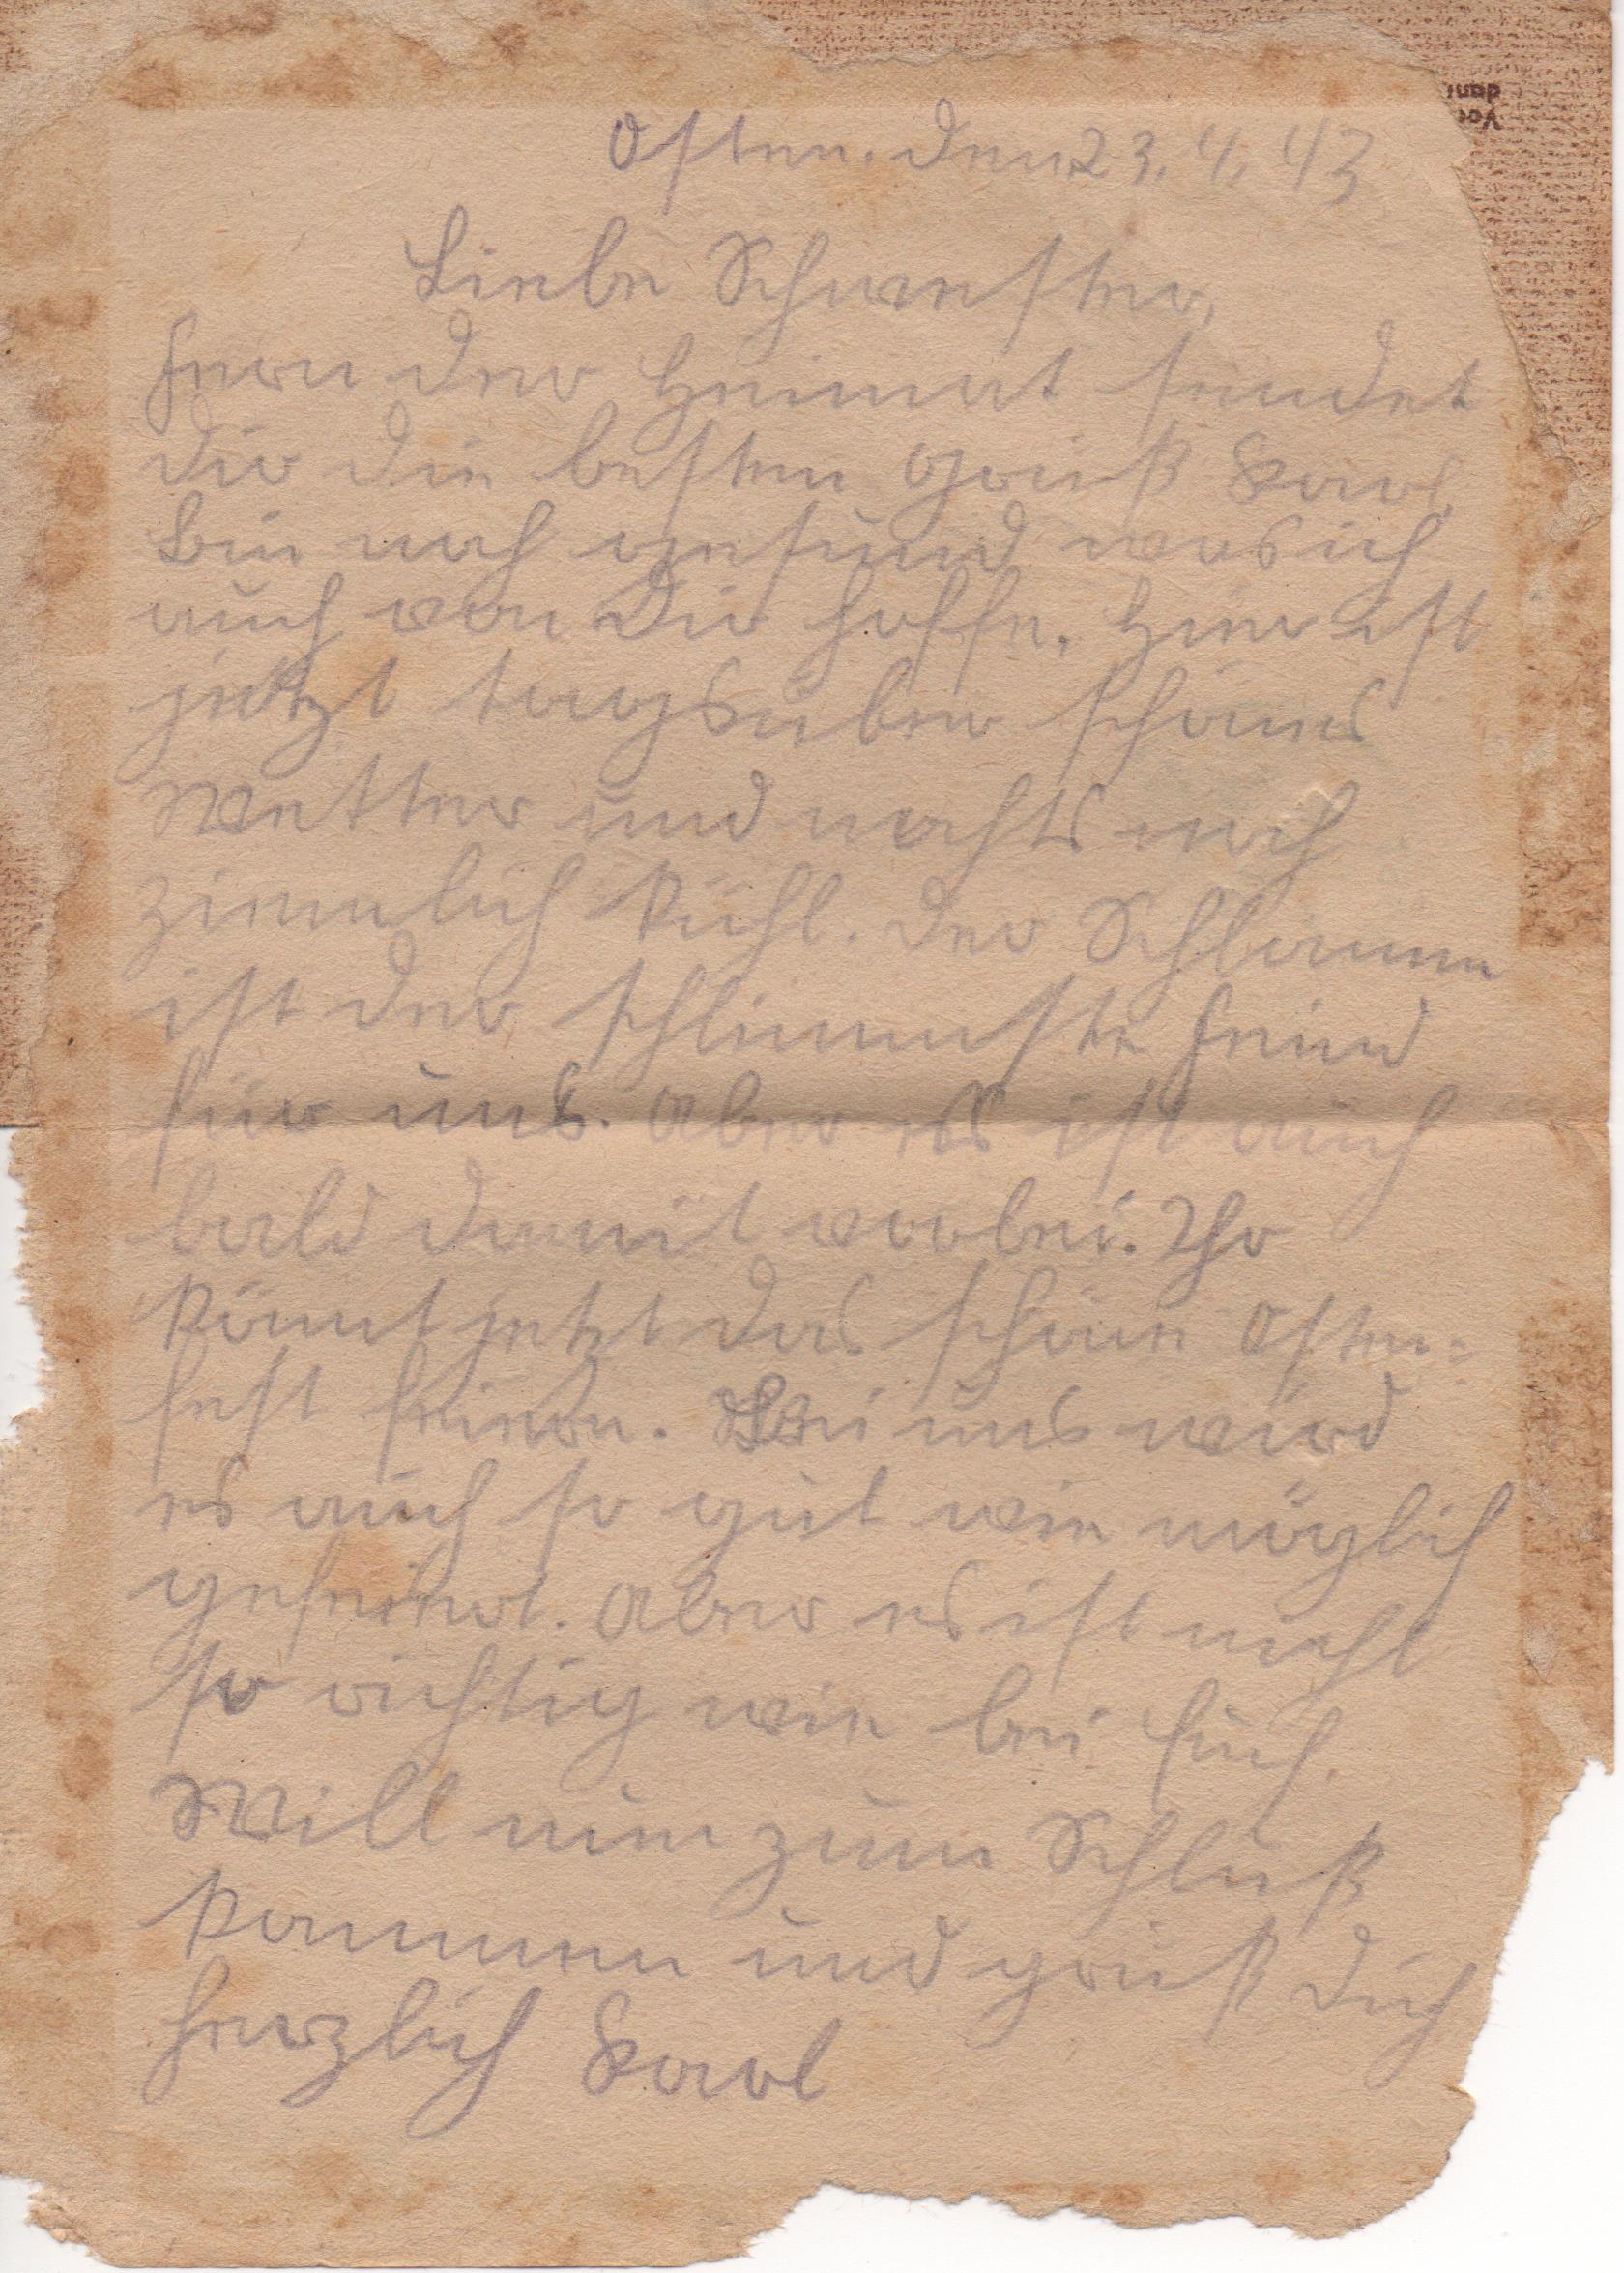 Osten. den 23. 4. 43
Liebe Schwester,
Fern der Heimat sendet
dir die besten Grüß Karl.
Bin noch gesund was ich
auch von Dir hoffe. Hier ist
jetzt tagsüber schönes
Wetter und nachts noch
ziemlich kühl. Der Schlamm
ist der schlimmste Feind
für uns. Aber es ist auch
bald damit vorbei. Ihr
könnt jetzt das schöne Oster-
fest feiern. Bei uns wird
es auch so gut wie möglich
gefeiert. Aber es ist nicht
so richtig wie bei Euch.
Will nun zum Schluß
kommen und grüß Dich
herzlich Karl